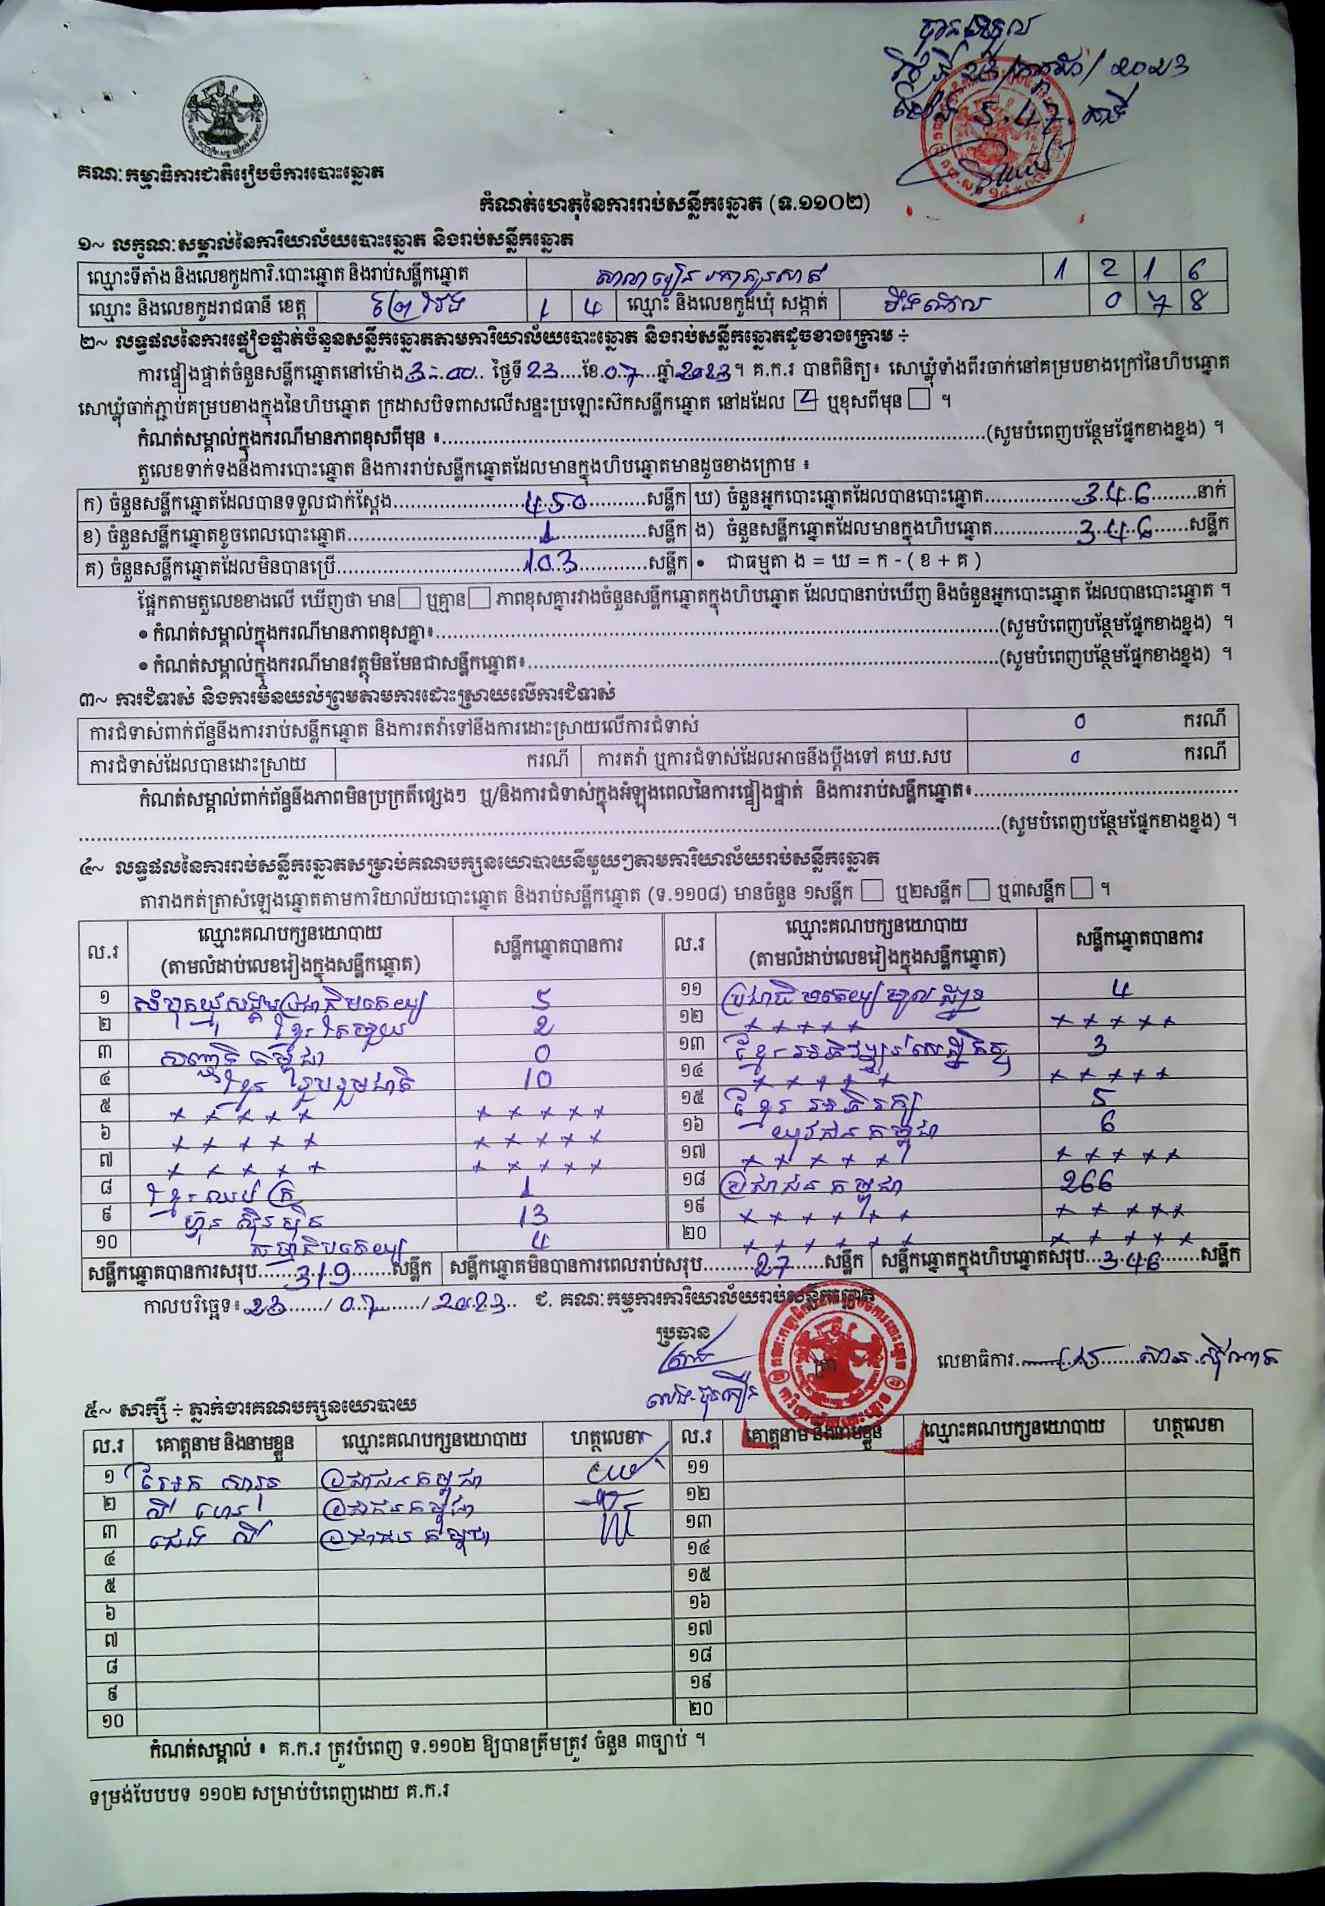 បានទទួល
ថ្ងៃទី 23/កក្កដា/2023
ម៉ោង 5.47
គណៈកម្មាធិការជាតិរៀបចំការបោះឆ្នោត
កំណត់ហេតុនៃការរាប់សន្លឹកឆ្នោត (ទ.១១០២)
១~ លក្ខណៈសម្គាល់នៃការិយាល័យបោះឆ្នោត និងរាប់សន្លឹកឆ្នោត
ឈ្មោះទីតាំង និងលេខកូដការិ.បោះឆ្នោត និងរាប់សន្លឹកឆ្នោត សាលារៀន 1 2 1 6
ឈ្មោះ និងលេខកូដរាជធានី ខេត្ត ព្រៃវែង 1 4 ឈ្មោះ និងលេខកូដឃុំ សង្កាត់ 0 7 8
២~ លទ្ធផលនៃការផ្ទៀងផ្ទាត់ចំនួនសន្លឹកឆ្នោតតាមការិយាល័យបោះឆ្នោត និងរាប់សន្លឹកឆ្នោតដូចខាងក្រោម ÷
ការផ្ទៀងផ្ទាត់ចំនួនសន្លឹកឆ្នោតនៅម៉ោង 3:00 ថ្ងៃទី 23 ខែ 07 ឆ្នាំ 2023 ។ គ.ក.រ បានពិនិត្យ៖ សោឃ្លុំទាំងពីរចាក់នៅគម្របខាងក្រៅនៃហិបឆ្នោត
សោឃ្លុំចាក់ភ្ជាប់គម្របខាងក្នុងនៃហិបឆ្នោត ក្រដាសបិទពាសលើសន្ទះប្រឡោះស៊កសន្លឹកឆ្នោត នៅដដែល ☑ ឬខុសពីមុន ☐ ។
កំណត់សម្គាល់ក្នុងករណីមានភាពខុសពីមុន ៖ (សូមបំពេញបន្ថែមផ្នែកខាងខ្នង) ។
តួលេខទាក់ទងនឹងការបោះឆ្នោត និងការរាប់សន្លឹកឆ្នោតដែលមានក្នុងហិបឆ្នោតមានដូចខាងក្រោម ៖
ក) ចំនួនសន្លឹកឆ្នោតដែលបានទទួលជាក់ស្តែង 450 សន្លឹក ឃ) ចំនួនអ្នកបោះឆ្នោតដែលបានបោះឆ្នោត 346 នាក់
ខ) ចំនួនសន្លឹកឆ្នោតខូចពេលបោះឆ្នោត 1 សន្លឹក ង) ចំនួនសន្លឹកឆ្នោតដែលមានក្នុងហិបឆ្នោត 346 សន្លឹក
គ) ចំនួនសន្លឹកឆ្នោតដែលមិនបានប្រើ 103 សន្លឹក • ជាធម្មតា ង = ឃ = ក - ( ខ + គ )
ផ្អែកតាមតួលេខខាងលើ ឃើញថា មាន ☐ ឬគ្មាន ☐ ភាពខុសគ្នារវាងចំនួនសន្លឹកឆ្នោតក្នុងហិបឆ្នោត ដែលបានរាប់ឃើញ និងចំនួនអ្នកបោះឆ្នោត ដែលបានបោះឆ្នោត ។
• កំណត់សម្គាល់ក្នុងករណីមានភាពខុសគ្នា៖ (សូមបំពេញបន្ថែមផ្នែកខាងខ្នង) ។
• កំណត់សម្គាល់ក្នុងករណីមានវត្ថុមិនមែនជាសន្លឹកឆ្នោត៖ (សូមបំពេញបន្ថែមផ្នែកខាងខ្នង) ។
៣~ ការជំទាស់ និងការមិនយល់ព្រមតាមការដោះស្រាយលើការជំទាស់
ការជំទាស់ពាក់ព័ន្ធនឹងការរាប់សន្លឹកឆ្នោត និងការតវ៉ាទៅនឹងការដោះស្រាយលើការជំទាស់ 0 ករណី
ការជំទាស់ដែលបានដោះស្រាយ ករណី ការតវ៉ា ឬការជំទាស់ដែលអាចនឹងប្តឹងទៅ គឃ.សប 0 ករណី
កំណត់សម្គាល់ពាក់ព័ន្ធនឹងភាពមិនប្រក្រតីផ្សេងៗ ឬ/និងការជំទាស់ក្នុងអំឡុងពេលនៃការផ្ទៀងផ្ទាត់ និងការរាប់សន្លឹកឆ្នោត៖
(សូមបំពេញបន្ថែមផ្នែកខាងខ្នង) ។
៤~ លទ្ធផលនៃការរាប់សន្លឹកឆ្នោតសម្រាប់គណបក្សនយោបាយនីមួយៗតាមការិយាល័យរាប់សន្លឹកឆ្នោត
តារាងកត់ត្រាសំឡេងឆ្នោតតាមការិយាល័យបោះឆ្នោត និងរាប់សន្លឹកឆ្នោត (ទ.១១០៨) មានចំនួន ១សន្លឹក ☐ ឬ២សន្លឹក ☐ ឬ៣សន្លឹក ☐ ។
ល.រ ឈ្មោះគណបក្សនយោបាយ (តាមលំដាប់លេខរៀងក្នុងសន្លឹកឆ្នោត) សន្លឹកឆ្នោតបានការ ល.រ ឈ្មោះគណបក្សនយោបាយ (តាមលំដាប់លេខរៀងក្នុងសន្លឹកឆ្នោត) សន្លឹកឆ្នោតបានការ
១ សំបុកឃ្មុំសង្គមប្រជាធិបតេយ្យ 5 ១១ ប្រជាធិបតេយ្យមូលដ្ឋាន 4
២ ខ្មែរតែមួយ 2 ១២ x x x x x x x x x x
៣ សញ្ជាតិកម្ពុជា 0 ១៣ ខ្មែរអភិវឌ្ឍន៍សេដ្ឋកិច្ច 3
៤ ខ្មែររួបរួមជាតិ 10 ១៤ x x x x x x x x x x
៥ x x x x x x x x x x ១៥ ខ្មែរអភិរក្ស 5
៦ x x x x x x x x x x ១៦ យុវជនកម្ពុជា 6
៧ x x x x x x x x x x ១៧ x x x x x x x x x x
៨ ខ្មែរឈប់ក្រ 1 ១៨ ប្រជាជនកម្ពុជា 266
៩ ហ៊្វុនស៊ិនប៉ិច 13 ១៩ x x x x x x x x x x x
១០ កម្លាំងប្រជាធិបតេយ្យ 4 ២០ x x x x x x x x x x x
សន្លឹកឆ្នោតបានការសរុប 319 សន្លឹក សន្លឹកឆ្នោតមិនបានការពេលរាប់សរុប 27 សន្លឹក សន្លឹកឆ្នោតក្នុងហិបឆ្នោតសរុប 346 សន្លឹក
កាលបរិច្ឆេទ៖ 23 / 07 / 2023 ជ. គណៈកម្មការការិយាល័យរាប់សន្លឹកឆ្នោត
ប្រធាន
លេខាធិការ
៥~ សាក្សី ÷ ភ្នាក់ងារគណបក្សនយោបាយ
ល.រ គោត្តនាម និងនាមខ្លួន ឈ្មោះគណបក្សនយោបាយ ហត្ថលេខា ល.រ គោត្តនាម និងនាមខ្លួន ឈ្មោះគណបក្សនយោបាយ ហត្ថលេខា
១ ប្រជាជនកម្ពុជា ១១
២ ប្រជាជនកម្ពុជា ១២
៣ ប្រជាជនកម្ពុជា ១៣
៤ ១៤
៥ ១៥
៦ ១៦
៧ ១៧
៨ ១៨
៩ ១៩
១០ ២០
កំណត់សម្គាល់ ៖ គ.ក.រ ត្រូវបំពេញ ទ.១១០២ ឱ្យបានត្រឹមត្រូវ ចំនួន ៣ច្បាប់ ។
ទម្រង់បែបបទ ១១០២ សម្រាប់បំពេញដោយ គ.ក.រ